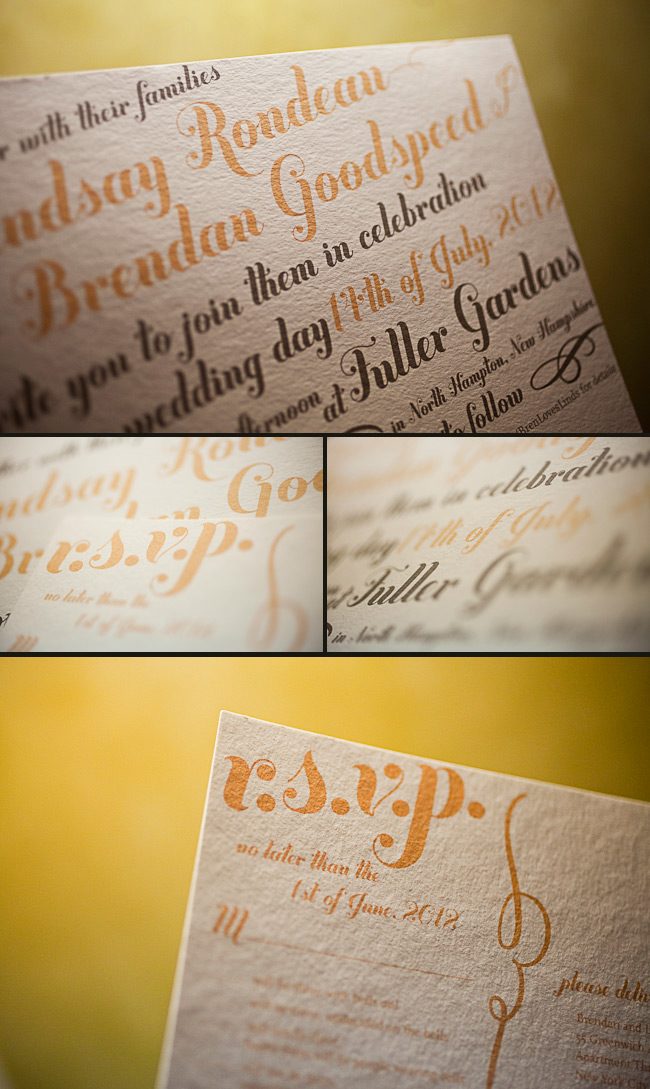 with their families
ndsay Rondeau
Brendan Goodspeed
you to join them in celebration
wedding day 14th of July, 2012
afternoon at Fuller Gardens
in North Hampton, New Hampshire
to follow
/BrenLovesLinds for details
Rondeau
Goo
Br
r.s.v.p.
no later than the
1st of June, 2012
them in celebration
day 14th of July,
at Fuller Gardens
in North Hampton,
r.s.v.p.
no later than the
1st of June, 2012
M
please deliv
Brendan and
55 Greenwich
Apartment
New York City